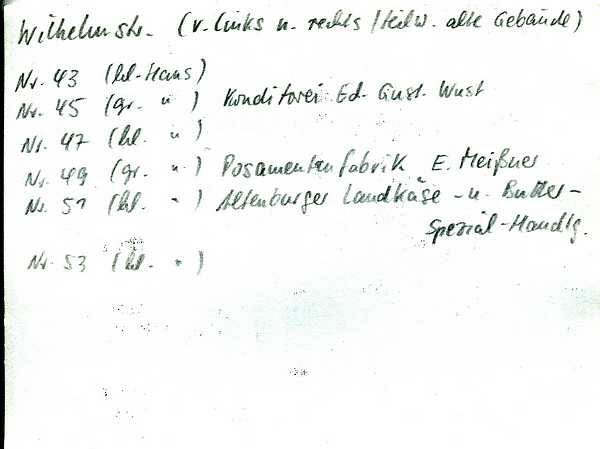 Wilhelmstr. (v. links n. rechts / teilw. alte Gebäude)
Nr. 43 (kl-Haus)
Nr. 45 (gr. ") Konditorei Ed. Gust. Wust
Nr. 47 (kl. ")
Nr. 49 (gr. ") Posamentenfabrik E. Meißner
Nr. 51 (kl. ") Altenburger Landkäse- u. Butter-
Spezial-Handlg.
Nr. 53 (kl. ")